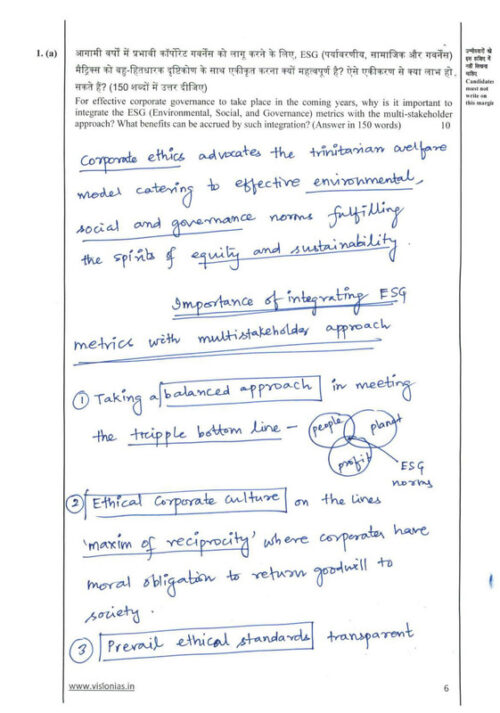 1. (a) आगामी वर्षों में प्रभावी कॉर्पोरेट गवर्नेंस को लागू करने के लिए, ESG (पर्यावरणीय, सामाजिक और गवर्नेंस)
मैट्रिक्स को बहु-हितधारक दृष्टिकोण के साथ एकीकृत करना क्यों महत्वपूर्ण है? ऐसे एकीकरण से क्या लाभ हो
सकते हैं? (150 शब्दों में उत्तर दीजिए)
For effective corporate governance to take place in the coming years, why is it important to
integrate the ESG (Environmental, Social, and Governance) metrics with the multi-stakeholder
approach? What benefits can be accrued by such integration? (Answer in 150 words) 10
उम्मीदवारों को
इस हाशिए में
नहीं लिखना
चाहिए
Candidates
must not
write on
this margin
Corporate ethics advocates the trinitarian welfare
model catering to effective environmental,
social and governance norms fulfilling
the spirits of equity and sustainability.
Importance of integrating ESG
metrics with multistakeholder approach
① Taking a balanced approach in meeting
the tripple bottom line –
people
planet
profit
ESG
norms
② Ethical Corporate culture on the lines
'maxim of reciprocity' where corporates have
moral obligation to return goodwill to
society.
③ Prevail ethical standards transparent
www.visionias.in
6